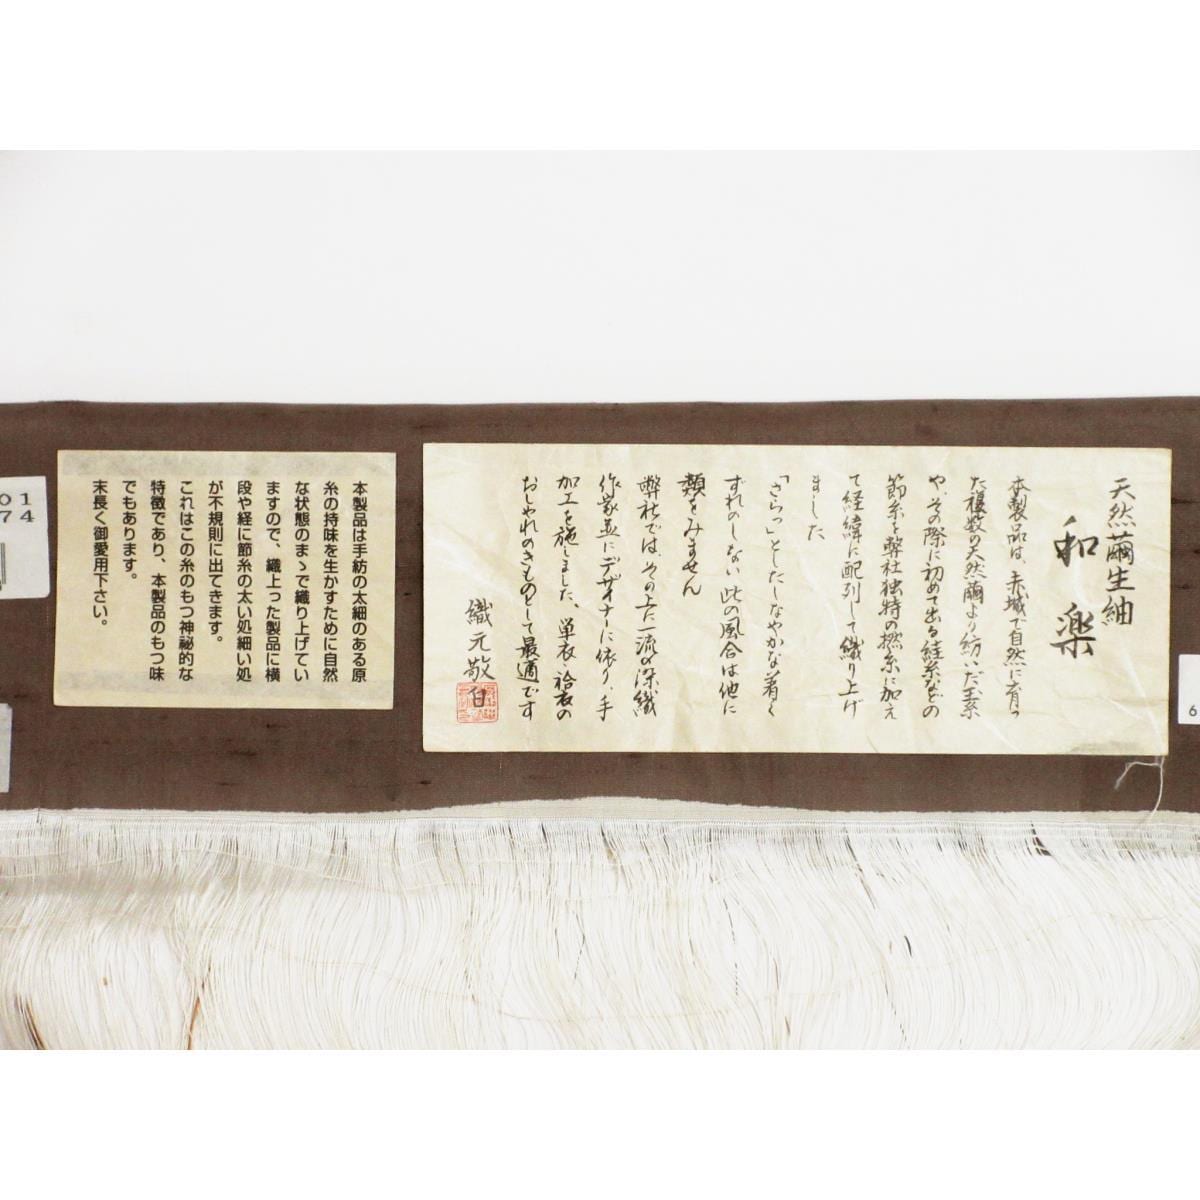 天然繭生紬
和楽
本製品は、赤城で自然に育っ
た複数の天然繭より紡いだ玉糸
や、その際に初め出る絓糸などの
節糸を弊社独特の撚糸に加え
て経緯に配列して織り上げ
ました
「さらっ」としたしなやかな着く
ずれのしない此の風合は他に
類をみません
弊社では、その上に一流の染織
作家並にデザイナーに依り、手
加工を施しました、単衣、袷衣の
おしゃれのきものとして最適です
織元敬白
本製品は手紡の太細のある原
糸の持味を生かすために自然
な状態のまゝで織り上げてい
ますので、織上った製品に横
段や経に節糸の太い処細い処
が不規則に出てきます。
これはこの糸のもつ神秘的な
特徴であり、本製品のもつ味
でもあります。
末長く御愛用下さい。
01
74
6